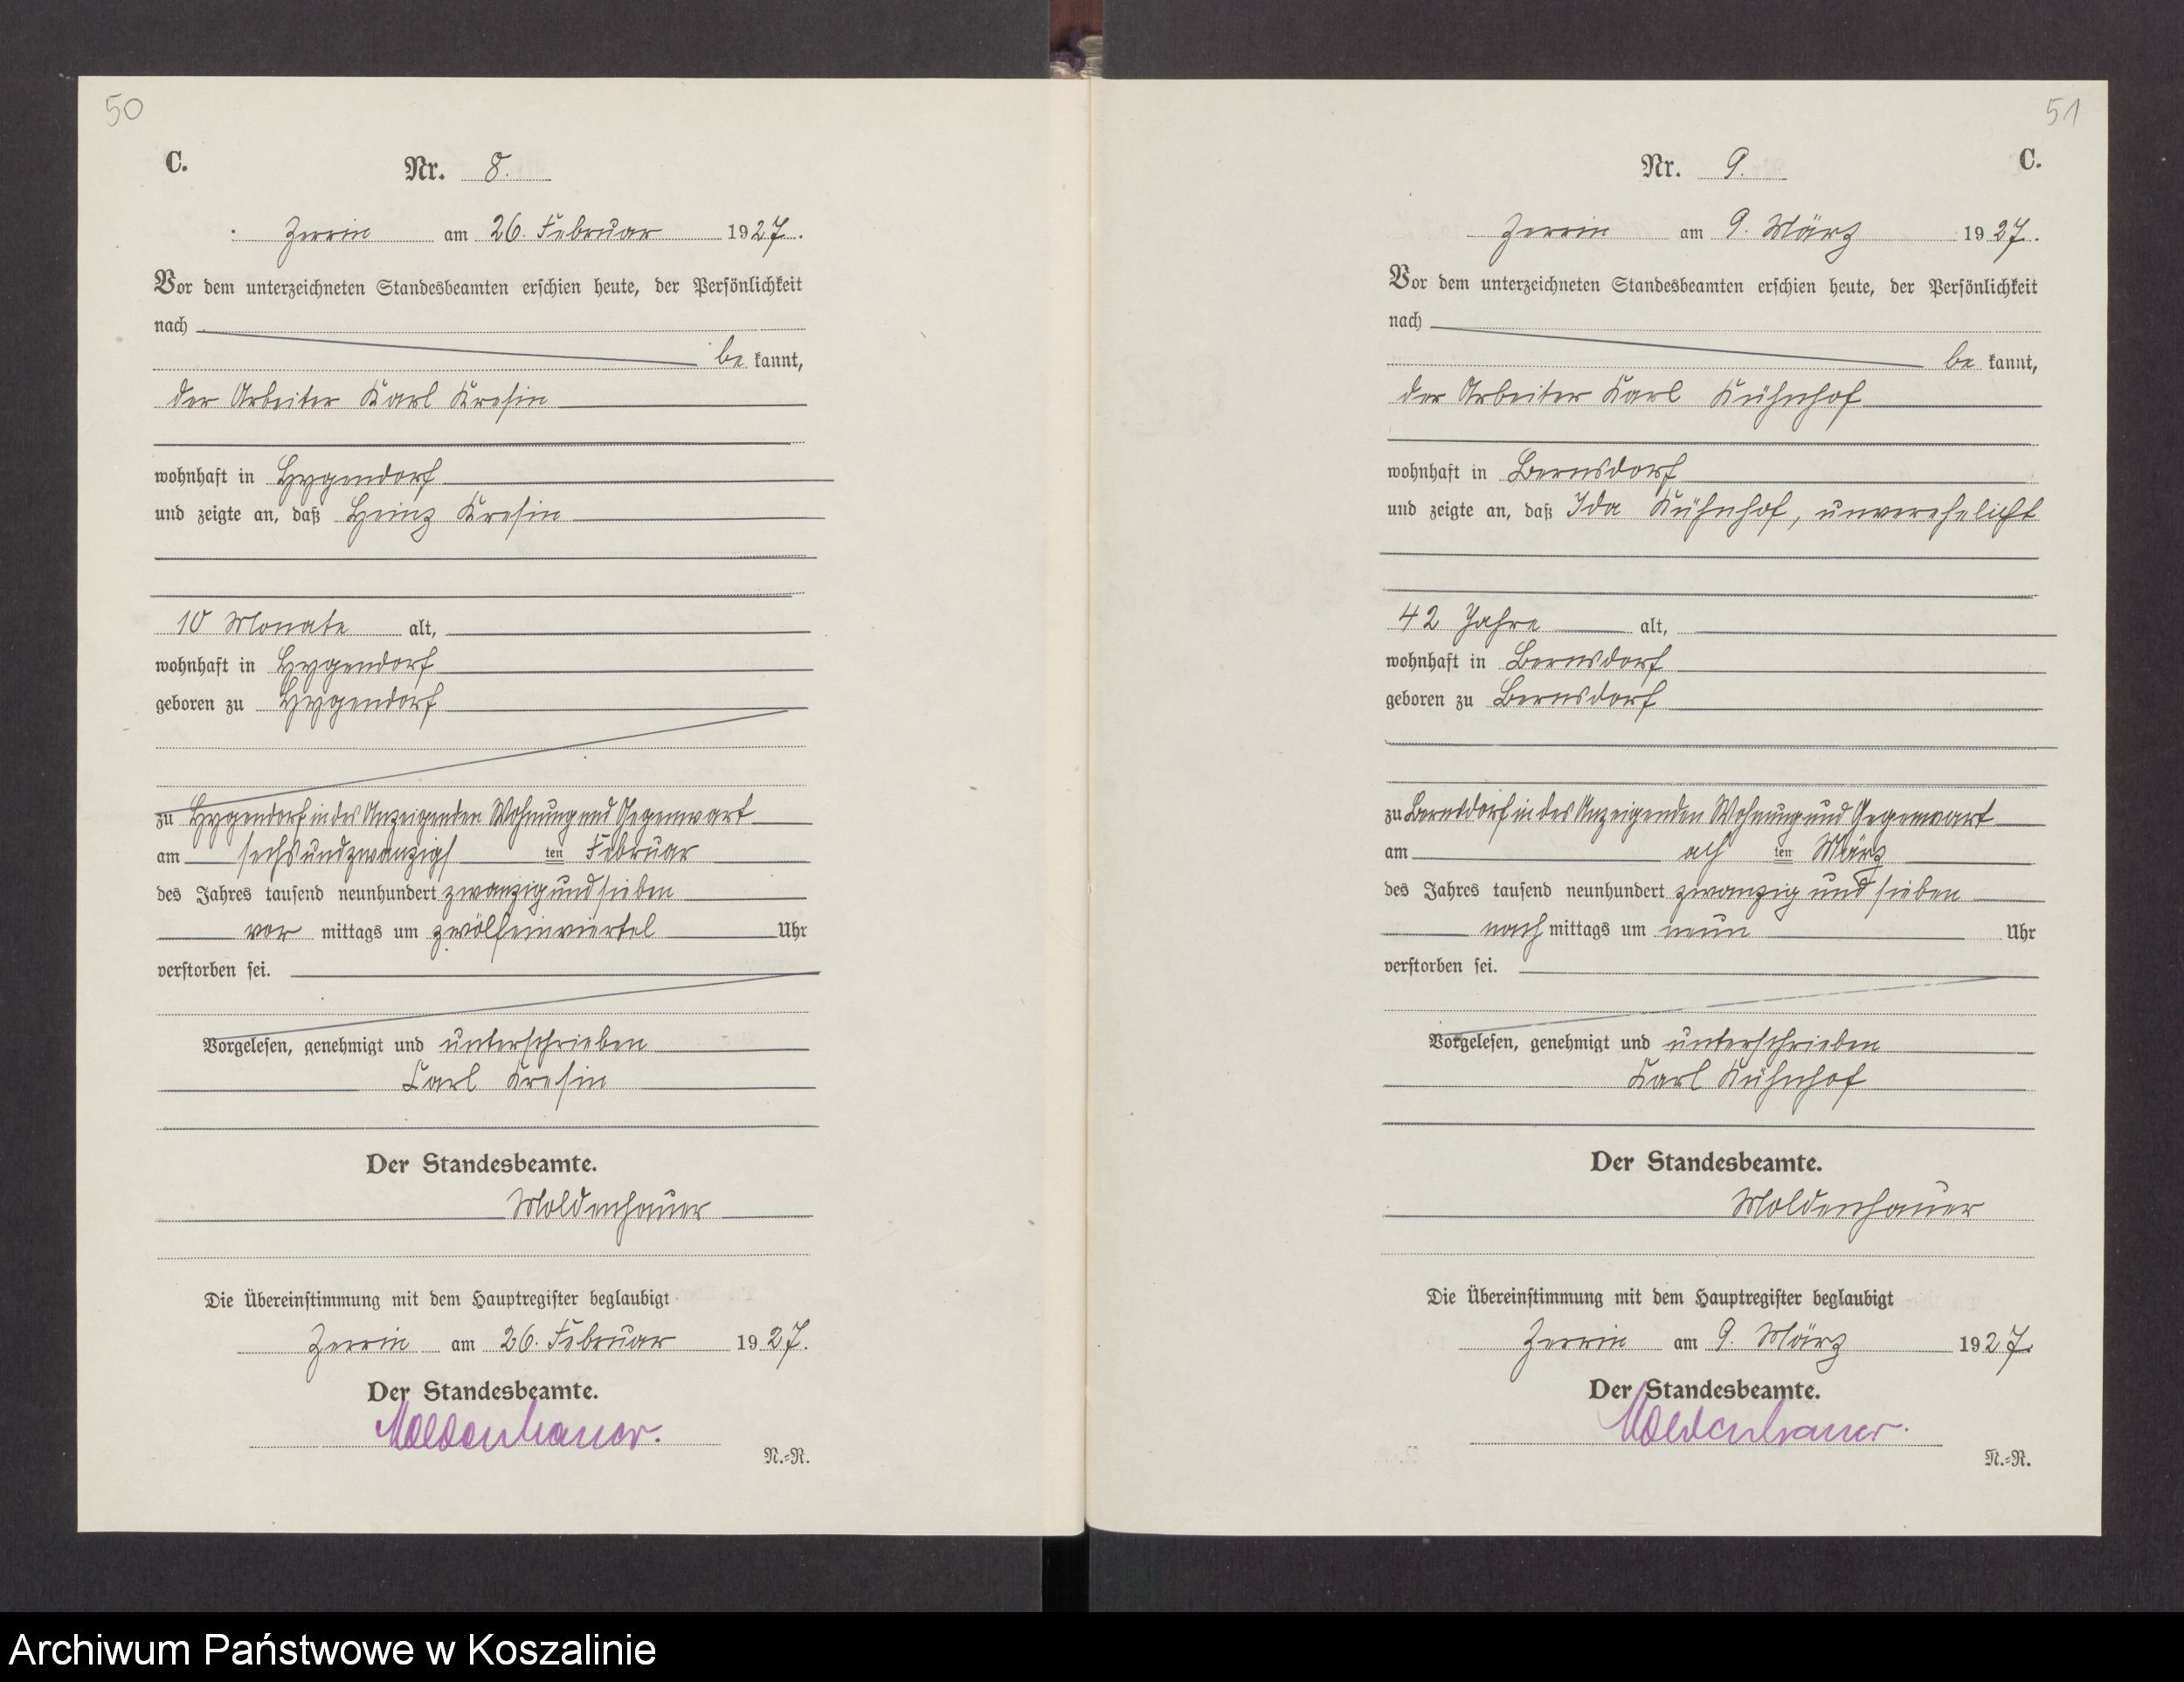 50
C.
Nr. 8.
Zerrin am 26. Februar 1927.
Vor dem unterzeichneten Standesbeamten erschien heute, der Persönlichkeit
nach
be kannt,
der Arbeiter Karl Kresin
wohnhaft in Hygendorf
und zeigte an, daß Heinz Kresin
10 Monate alt,
wohnhaft in Hygendorf
geboren zu Hygendorf
zu Hygendorf in des Anzeigenden Wohnung und Gegenwart
am sechsundzwanzigsten Februar
des Jahres tausend neunhundert zwanzig und sieben
vor mittags um zwölfeinviertel Uhr
verstorben sei.
Vorgelesen, genehmigt und unterschrieben
Carl Kresin
Der Standesbeamte.
Moldenhauer
Die Übereinstimmung mit dem Hauptregister beglaubigt
Zerrin am 26. Februar 1927.
Der Standesbeamte.
Moldenhauer.
N.=R.
51
Nr. 9. C.
Zerrin am 9. März 1927.
Vor dem unterzeichneten Standesbeamten erschien heute, der Persönlichkeit
nach
be kannt,
der Arbeiter Karl Kühnhof
wohnhaft in Bernsdorf
und zeigte an, daß Ida Kühnhof, unverehelicht
42 Jahre alt,
wohnhaft in Bernsdorf
geboren zu Bernsdorf
zu Bernsdorf in des Anzeigenden Wohnung und Gegenwart
am ach ten März
des Jahres tausend neunhundert zwanzig und sieben
nach mittags um neun Uhr
verstorben sei.
Vorgelesen, genehmigt und unterschrieben
Karl Kühnhof
Der Standesbeamte.
Moldenhauer
Die Übereinstimmung mit dem Hauptregister beglaubigt
Zerrin am 9. März 1927.
Der Standesbeamte.
Moldenhauer.
N.=R.
Archiwum Państwowe w Koszalinie